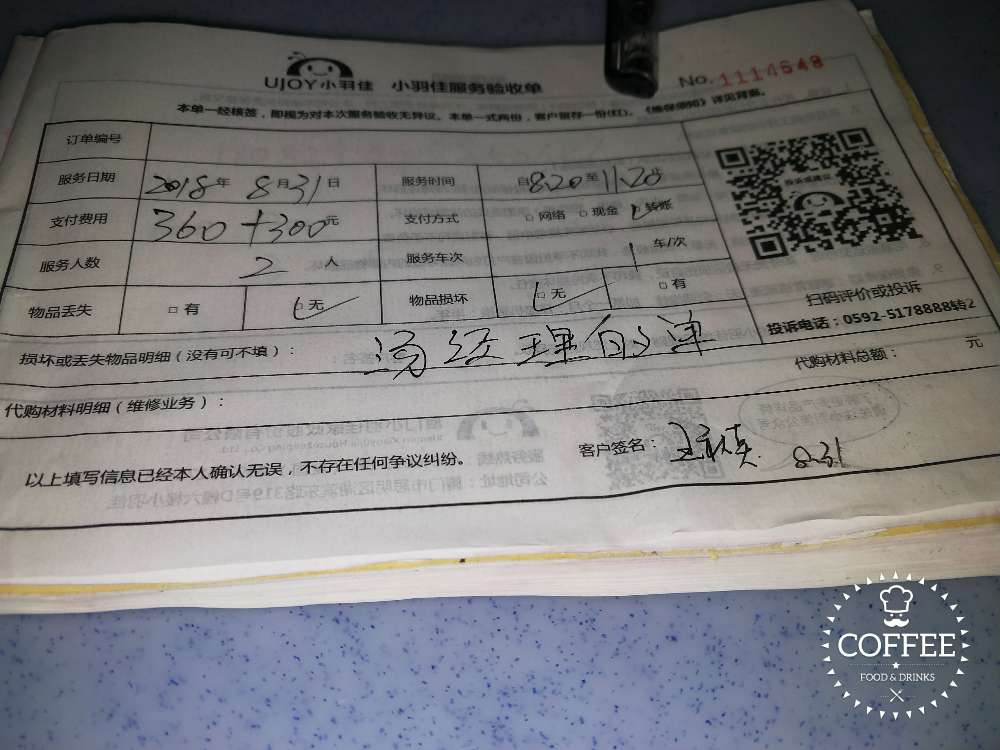 UJOY小羽佳 小羽佳服务验收单 No. 1114648
本单一经核签，即视为对本次服务验收无异议。本单一式两份，客户留存一份(红)。《维保须知》详见背面。
订单编号
服务日期 2018年 8月31日 服务时间 自8.20至11.20
支付费用 360+300元 支付方式 □网络 □现金 □转账
服务人数 2 人 服务车次 1 车/次
物品丢失 □有 □无 物品损坏 □无 □有
投诉或建议
扫码评价或投诉
投诉电话：0592-5178888转2
损坏或丢失物品明细（没有可不填）： 汤经理的单
代购材料明细（维修业务）： 代购材料总额： 元
以上填写信息已经本人确认无误，不存在任何争议纠纷。 客户签名： 8.31
COFFEE
FOOD & DRINKS